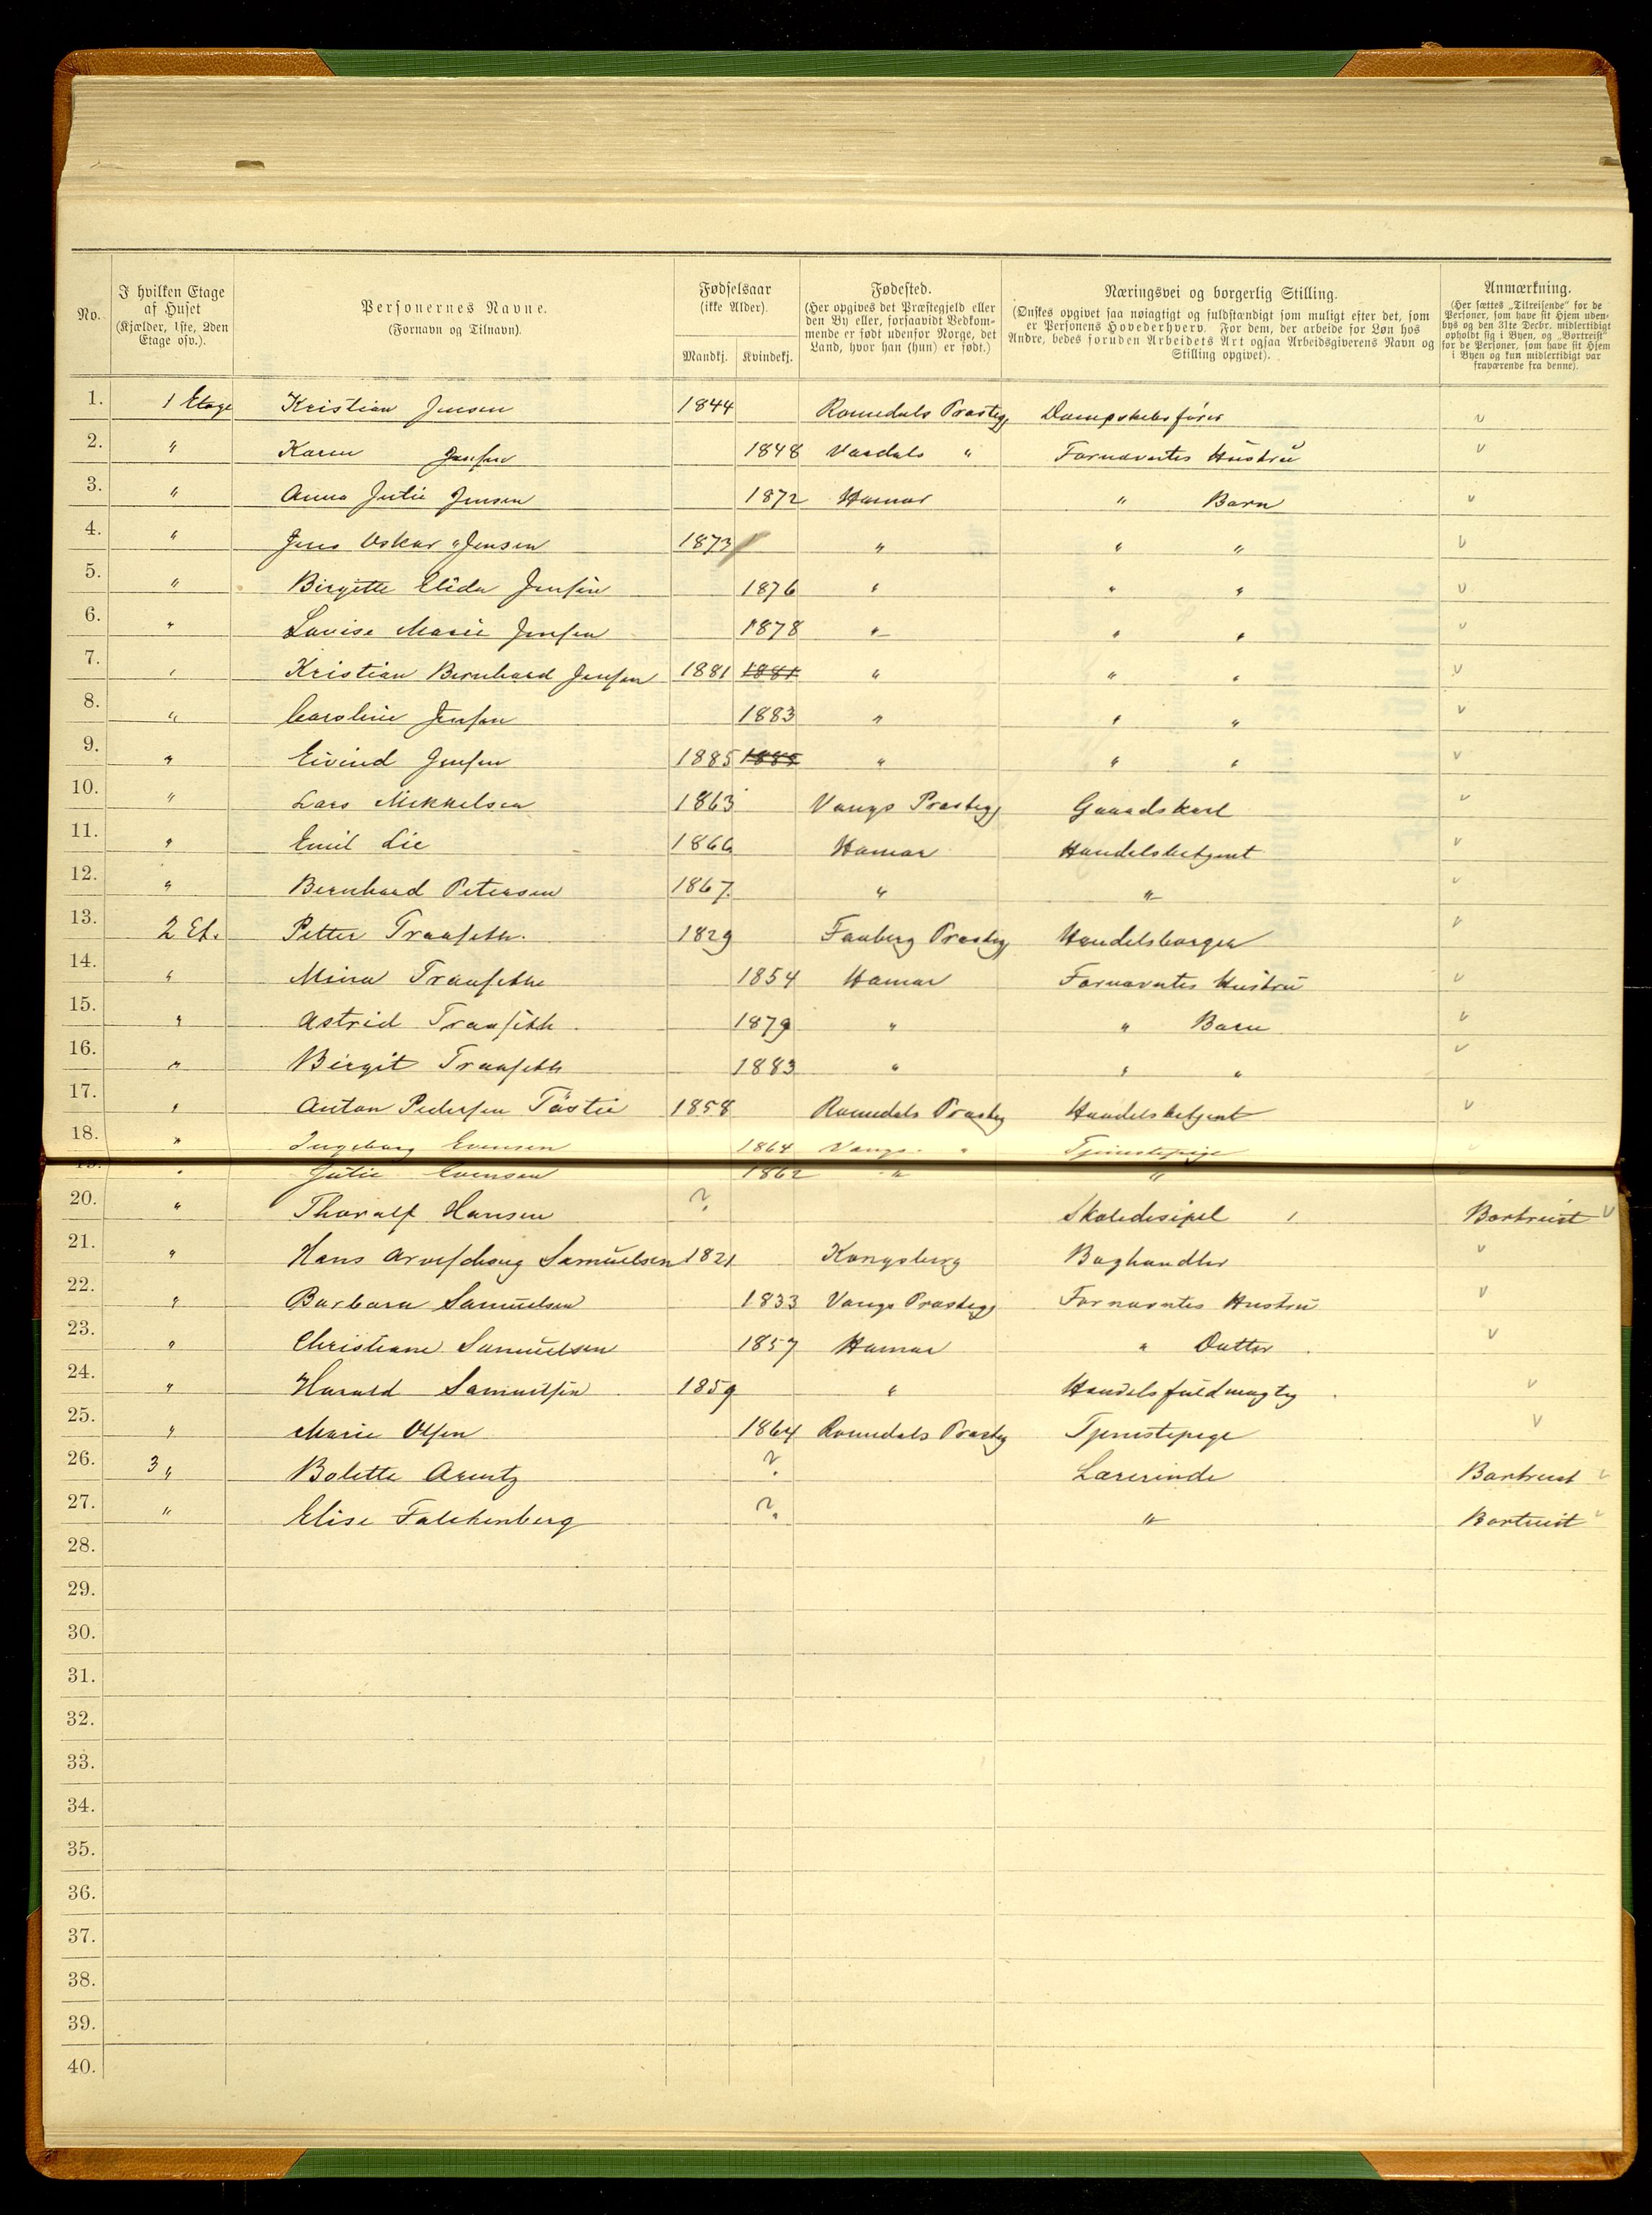 No.
I hvilken Etage af Huset (Kjælder, 1ste, 2den Etage osv.).
Personernes Navne. (Fornavn og Tilnavn).
Fødselsaar (ikke Alder).
Mandkj. Kvindekj.
Fødested. (Her opgives det Præstegjeld eller den By eller, forsaavidt Vedkommende er født udenfor Norge, det Land, hvor han (hun) er født.)
Næringsvei og borgerlig Stilling. (Ønskes opgivet saa nøiagtigt og fuldstændigt som muligt efter det, som er Personens Hovederhverv. For dem, der arbeide for Løn hos Andre, bedes foruden Arbeidets Art ogsaa Arbeidsgiverens Navn og Stilling opgivet).
Anmærkning. (Her sættes „Tilreisende" for de Personer, som have sit Hjem udenbys og den 31te Decbr. midlertidigt opholdt sig i Byen, og „Bortreist" for de Personer, som have sit Hjem i Byen og kun midlertidigt var fraværende fra denne).
1. 1 Etage Kristian Jensen 1844 Romedals Præstegj Dampskibsfører v
2. " Karen Jensen 1848 Vardals " Fornævntes Hustru v
3. " Anna Julie Jensen 1872 Hamar " Barn v
4. " Jens Oskar Jensen 1873 " " " v
5. " Birgitte Elida Jensen 1876 " " " v
6. " Lovise Marie Jensen 1878 " " " v
7. " Kristian Bernhard Jensen 1881 1881 " " " v
8. " Caroline Jensen 1883 " " " v
9. " Eivind Jensen 1885 1885 " " " v
10. " Lars Mikkelsen 1863 Vangs Præstegj Gaardskarl v
11. " Emil Lie 1866 Hamar Handelsbetjent v
12. " Bernhard Petersen 1867. " " v
13. 2 Et. Petter Traaseth. 1829 Faaberg Præstegj Handelsborger v
14. " Mina Traaseth 1854 Hamar Fornævntes Hustru v
15. " Astrid Traaseth 1879 " " Barn v
16. " Birgit Traaseth 1883 " " " v
17. " Anton Pedersen Tøstie 1858 Romedals Præstegj Handelsbetjent v
18. " Ingeborg Evensen 1864 Vangs " Tjenestepige
19. " Julie Evensen 1862 " "
20. " Tharalf Hansen ? Skoledisipel 1 Bortreist v
21. " Hans Samuelsen 1821 Kongsberg Boghandler v
22. " Barbara Samuelsen 1833 Vangs Præstegj Fornævntes Hustru v
23. " Christiane Samuelsen 1857 Hamar " Datter v
24. " Harald Samuelsen 1859 " Handelsfuldmægtig v
25. " Marie Olsen 1864 Romedals Præstegj Tjenestepige v
26. 3 " Bolette Arentz ? Lærerinde Bortreist v
27. " Elise Falckenberg ? " Bortreist v
28.
29.
30.
31.
32.
33.
34.
35.
36.
37.
38.
39.
40.